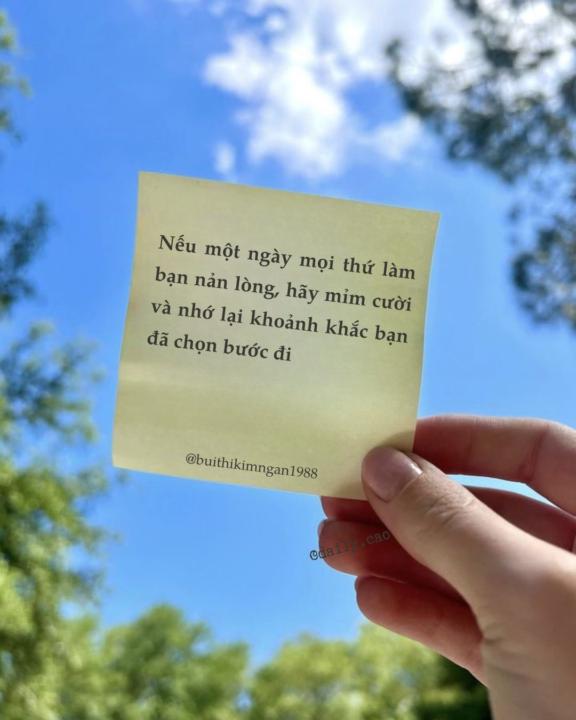 Nếu một ngày mọi thứ làm
bạn nản lòng, hãy mỉm cười
và nhớ lại khoảnh khắc bạn
đã chọn bước đi
@buithikimngan1988
@daily.cao